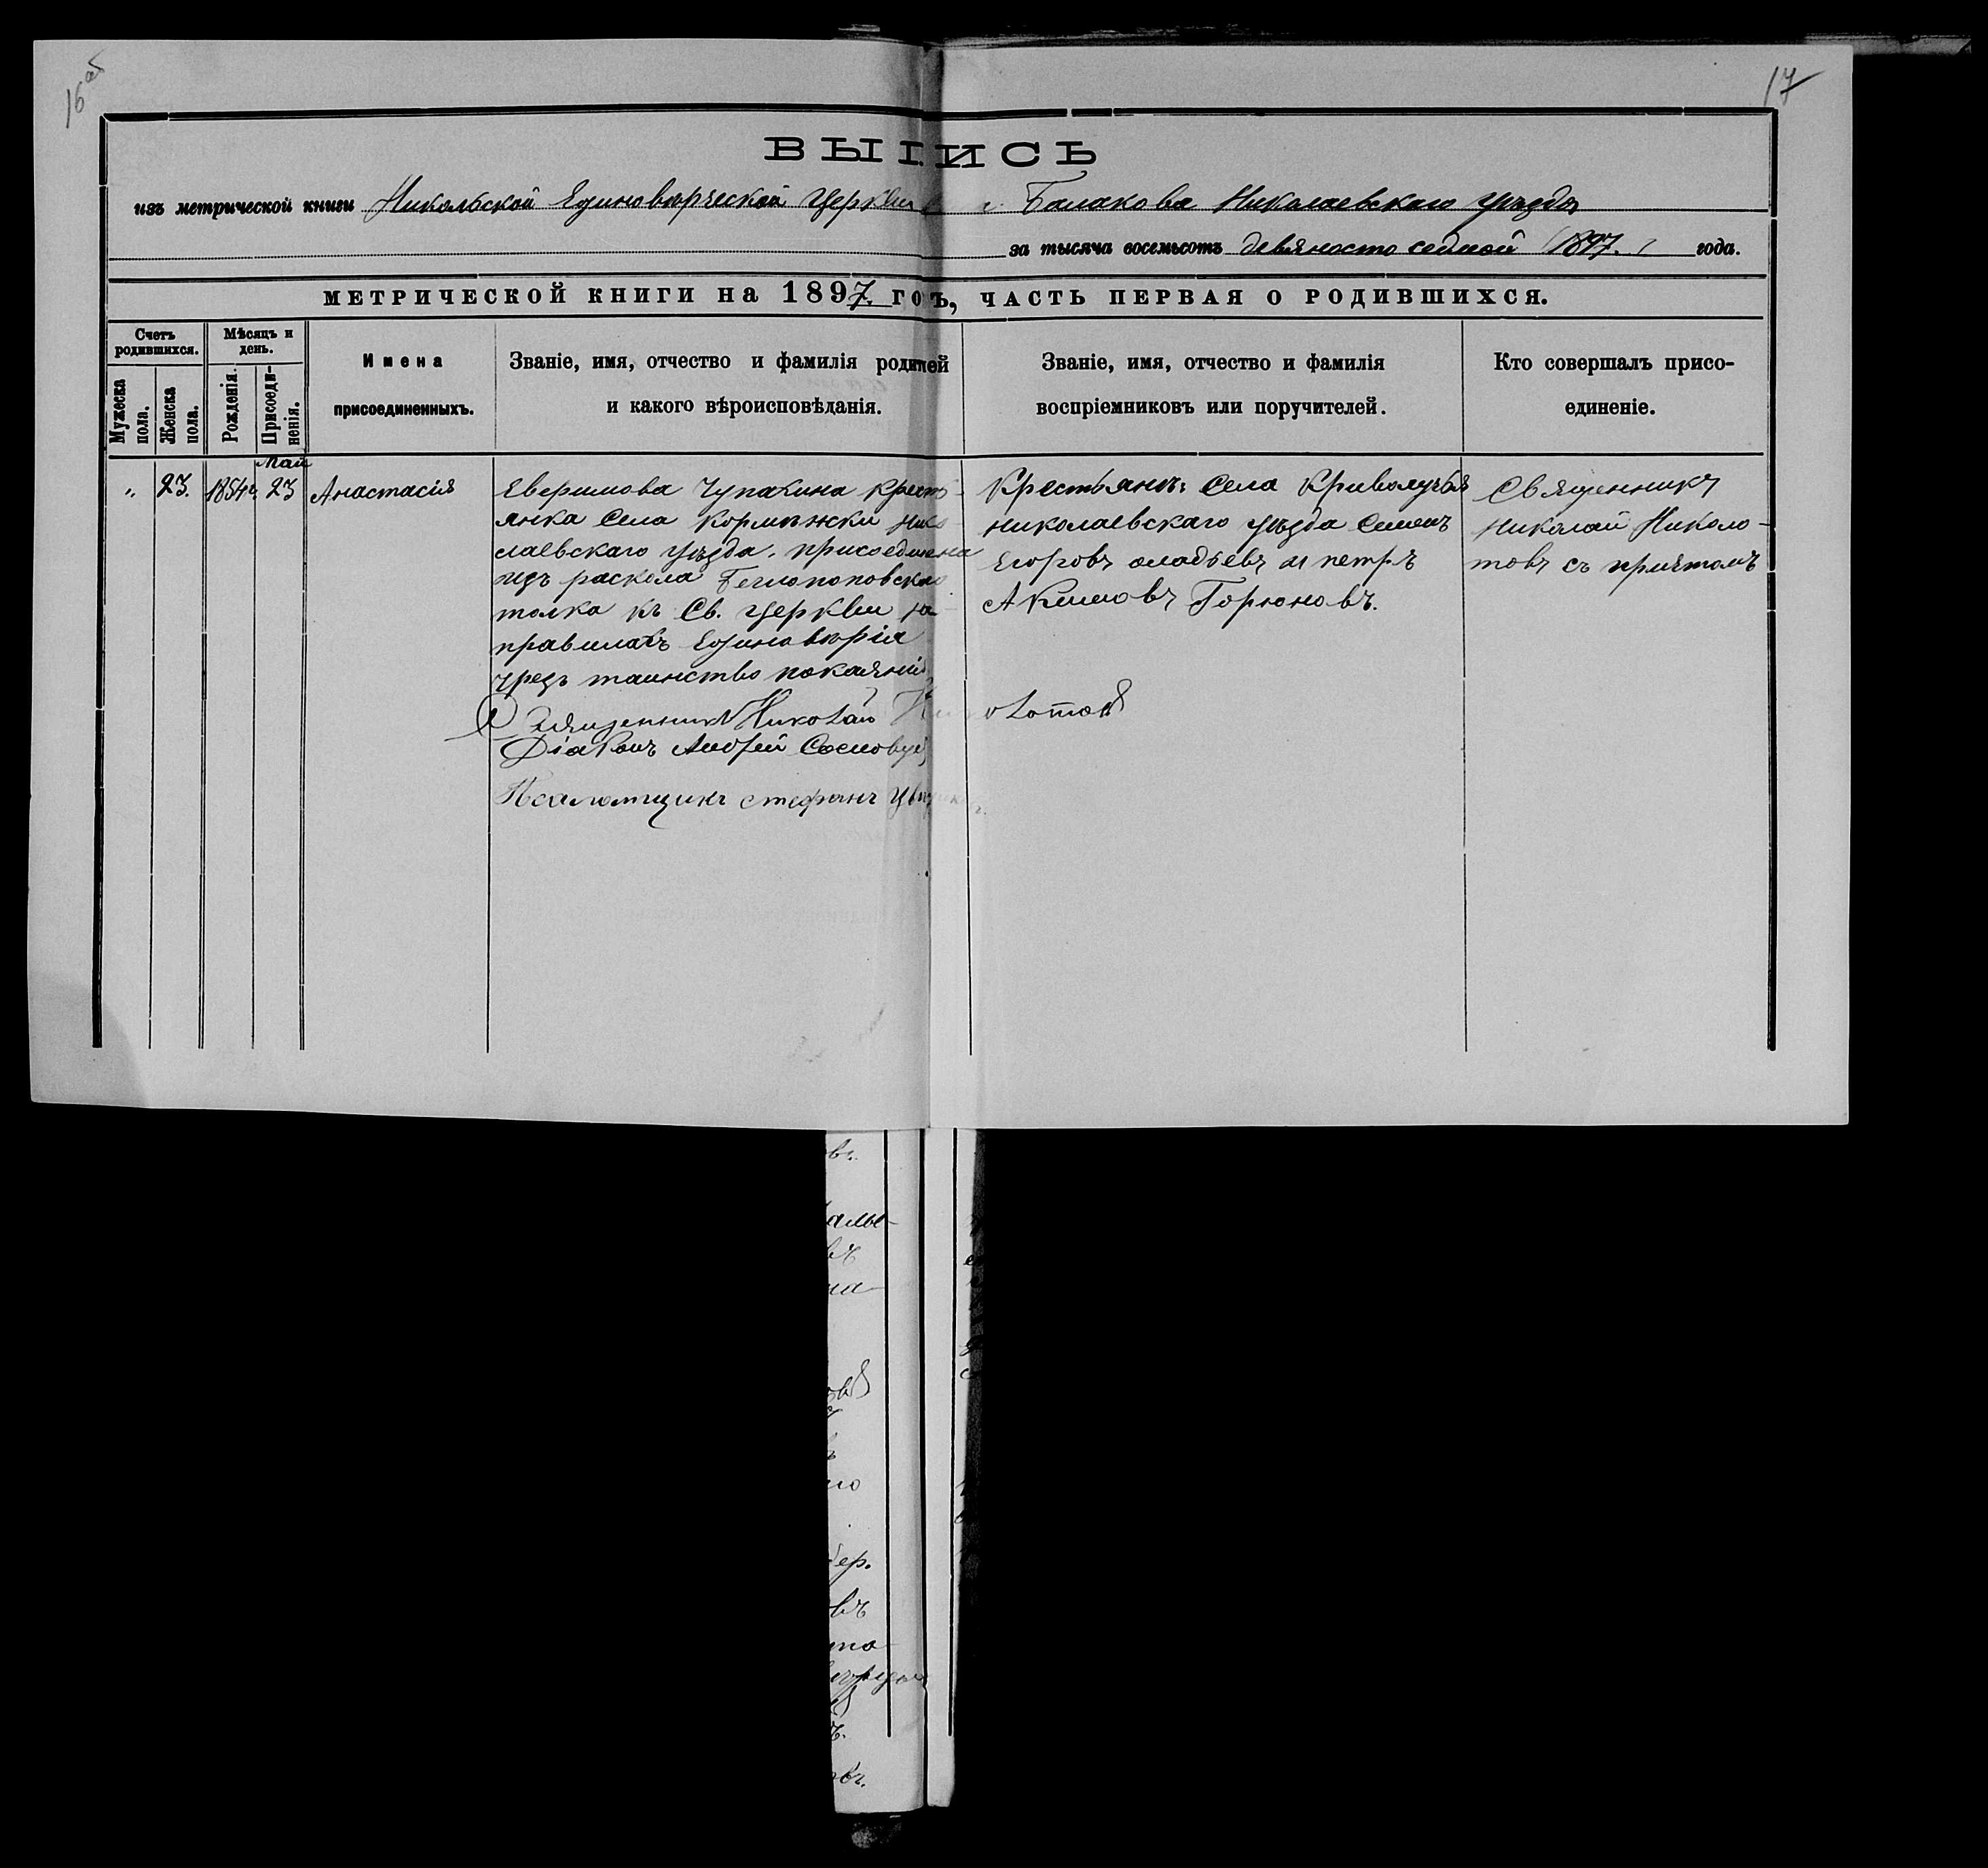 16 об
17
ВЫПИСЬ
изъ метрической книги Никольской Единовѣрческой Церкви с. Балакова Николаевскаго уѣзда
за тысяча восемьсотъ девяносто седмой (1897.) года.
МЕТРИЧЕСКОЙ КНИГИ на 1897. годъ, ЧАСТЬ ПЕРВАЯ О РОДИВШИХСЯ.
Счетъ родившихся.
Мужеска пола.
Женска пола.
Мѣсяцъ и день.
Рожденія.
Присоединенія.
Имена
присоединенныхъ.
Званіе, имя, отчество и фамилія родителей
и какого вѣроисповѣданія.
Званіе, имя, отчество и фамилія
воспріемниковъ или поручителей.
Кто совершалъ присо-
единеніе.
Май
„ 23. 1854г. 23 Анастасія
Еверимова Чупакина крест-
янка села Кормѣжки Нико-
лаевскаго уѣзда. присоединена
изъ раскола Беглопоповскаго
толка къ Св. Церкви на
правилахъ Единовѣрія
чрезъ таинство покаянія
Крестьяне: Села Криволучья
Николаевскаго уѣзда Семенъ
Егоровъ Оладьевъ и петръ
Акимовъ Горюновъ.
Священникъ
Николай Николо-
товъ съ причтомъ
Священникъ Николай Николотовъ
Діаконъ Андрей
Псаломщикъ Стефанъ